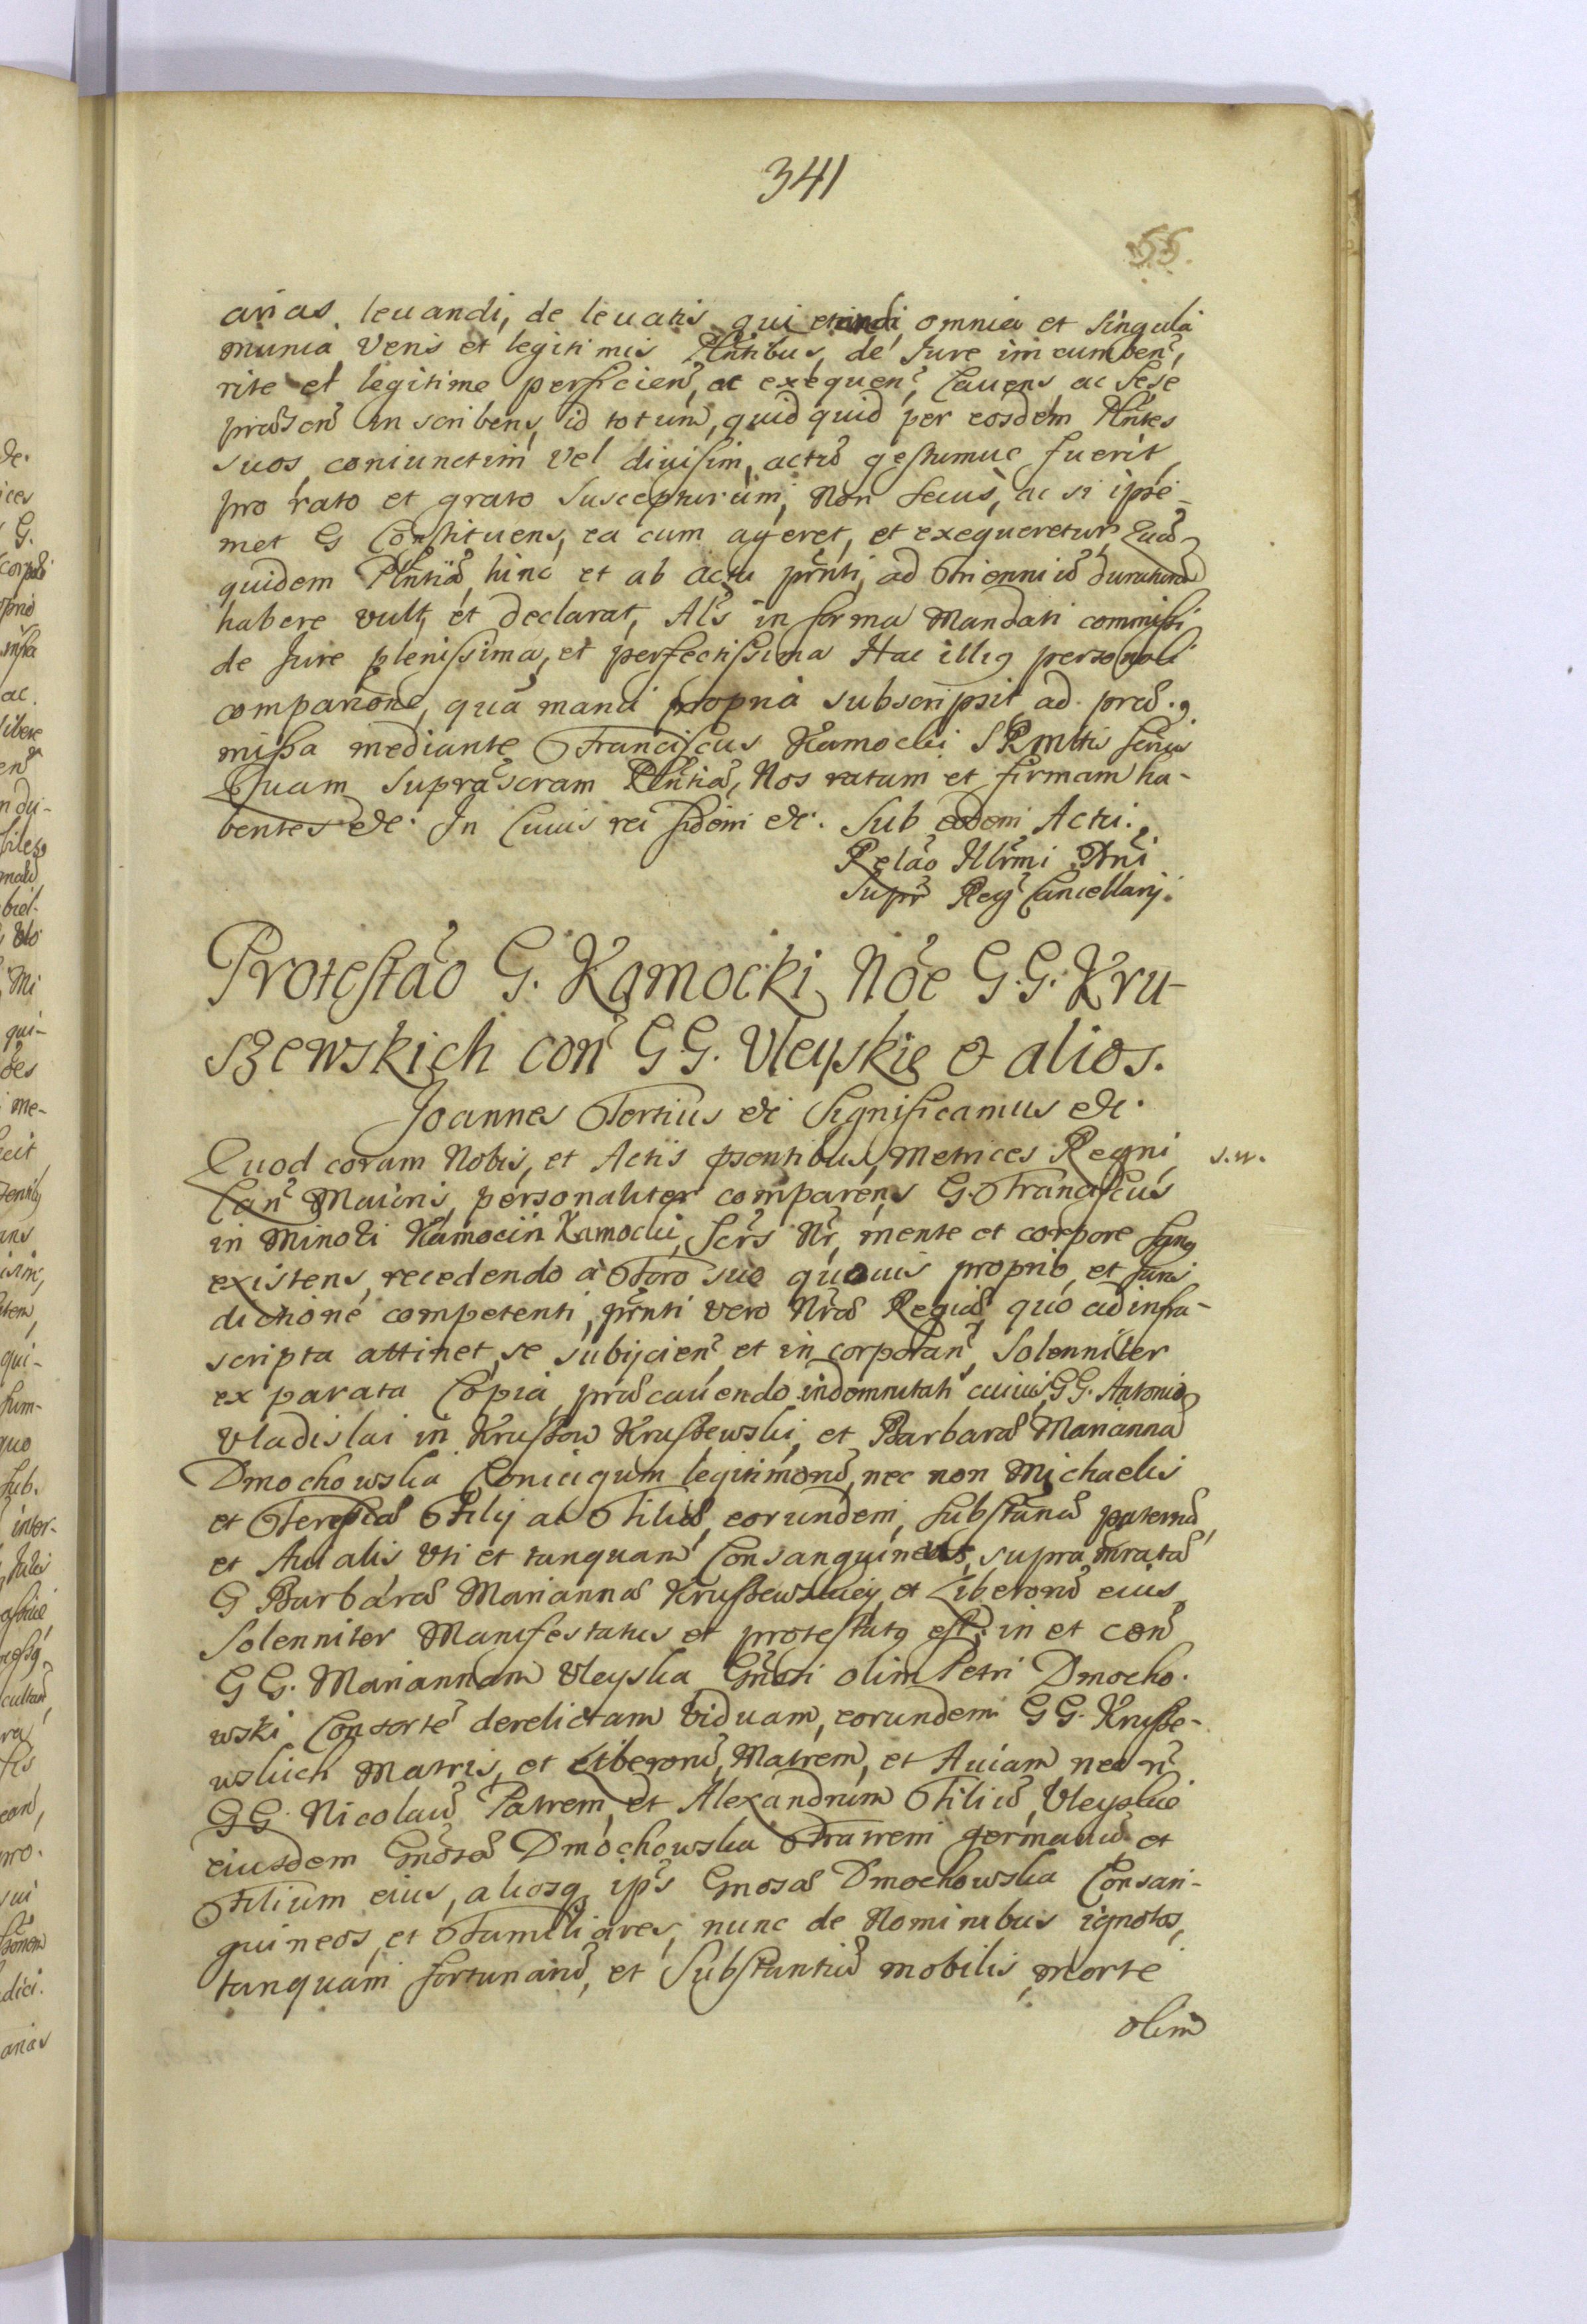 341
55.
arias levandi, de levatis quietandi omnia et singula
munia veris et legitimis Plntibus, de Jure incumben,
rite et legitime perficien, ac exequen, Cavens ac sese
praesen inscribens, id totum, quidquid per eosdem Plntes
suos coniunctim vel divisim, actu gestumue fuerit
pro rato et grato suscepturum, non secus, ac si ipse-
met G Constituens, ea cum ageret, et exequeretur, Quas
quidem Plntiã, hinc et ab actu prnti, ad trienniũ duraturã
habere vult, et declarat, Als in forma Mandati commissi
de Jure plenissima, et perfectissima Hac illius personali
comparione, quã manu propria subscripsit ad prae.
missa mediante Franciscus Kamocki SRMttis
Quam suprascram Plntiã, Nos ratam et firmam ha-
bentes etc. In Cuius rei fidem etc. Sub eodem Actu.
Relao Illrmi Dni
Supr Reg Cancellarij.
Protestão G. Kamocki, Nõe G.G. Kru-
szewskich con G.G. Uleyskie et alios.
Joannes Tertius etc Significamus etc.
Quod coram Nobis, et Actis psentibus, Metrices Regni s.w.
Can Maioris, personaliter comparens G. Franciscus
in Kamocin Kamocki, Scrs Nr, mente et corpore sanus
existens, recedendo a Foro suo quovis proprio, et Juris
dictione competenti, prnti vero Nrae Regiae, quo ad infra-
scripta attinet, se subijcien et incorporan, Solenniter
ex parata Copia, praecavendo indemnitati cuivis GG. Antonio
Vladislai in Kruszow Kruszewski, et Barbarae Marianna
Dmochowska Coniugum legitimorũ, nec non Michaelis
et Teresiae Filij ac Filiae, eorundem, substantiae paternae,
et Auialis uti et tanquam Consanguineus, supra nratae
G Barbarae Mariannae Kruszewskiey, et Liberorũ eius,
Solenniter Manifestatus et protestatus est, in et con
GG. Mariannam Uleyska Gnosi olim Petri Dmocho.
wski Consorte derelictam Viduam, eorundem GG. Krusze-
wskich Matris, et Liberorũ, Matrem, et Aviam nec n
GG. Nicolaũ Patrem, et Alexandrum Filiũ, Uleyskie
eiusdem Gnosae Dmochowska Fratrem germanũ et
Filium eius, aliosq ips Gnosae Dmochowska Consan-
guineos, et Familiares, nunc de Nominibus ignotos,
tanquam fortunarũ, et Substantiae mobilis, morte
olim